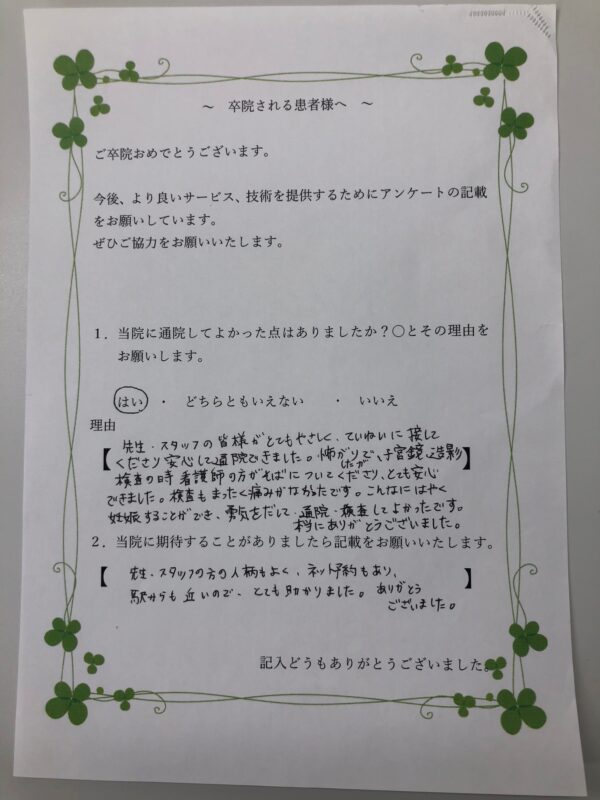 ～ 卒院される患者様へ ～
ご卒院おめでとうございます。
今後、より良いサービス、技術を提供するためにアンケートの記載
をお願いしています。
ぜひご協力をお願いいたします。
1．当院に通院してよかった点はありましたか？○とその理由を
お願いします。
はい ・ どちらともいえない ・ いいえ
理由
【 先生・スタッフの皆様がとてもやさしく、ていねいに接して
くださり安心して通院できました。怖がりでしたが、子宮鏡、造影 】
検査の時看護師の方がそばについてくださり、とても安心
できました。検査もまったく痛みがなかったです。こんなにはやく
妊娠することができ、勇気をだして・通院・検査してよかったです。
本当にありがとうございました。
2．当院に期待することがありましたら記載をお願いいたします。
【 先生・スタッフの方の人柄もよく、ネット予約もあり、 】
駅からも近いので、とても助かりました。ありがとう
ございました。
記入どうもありがとうございました。